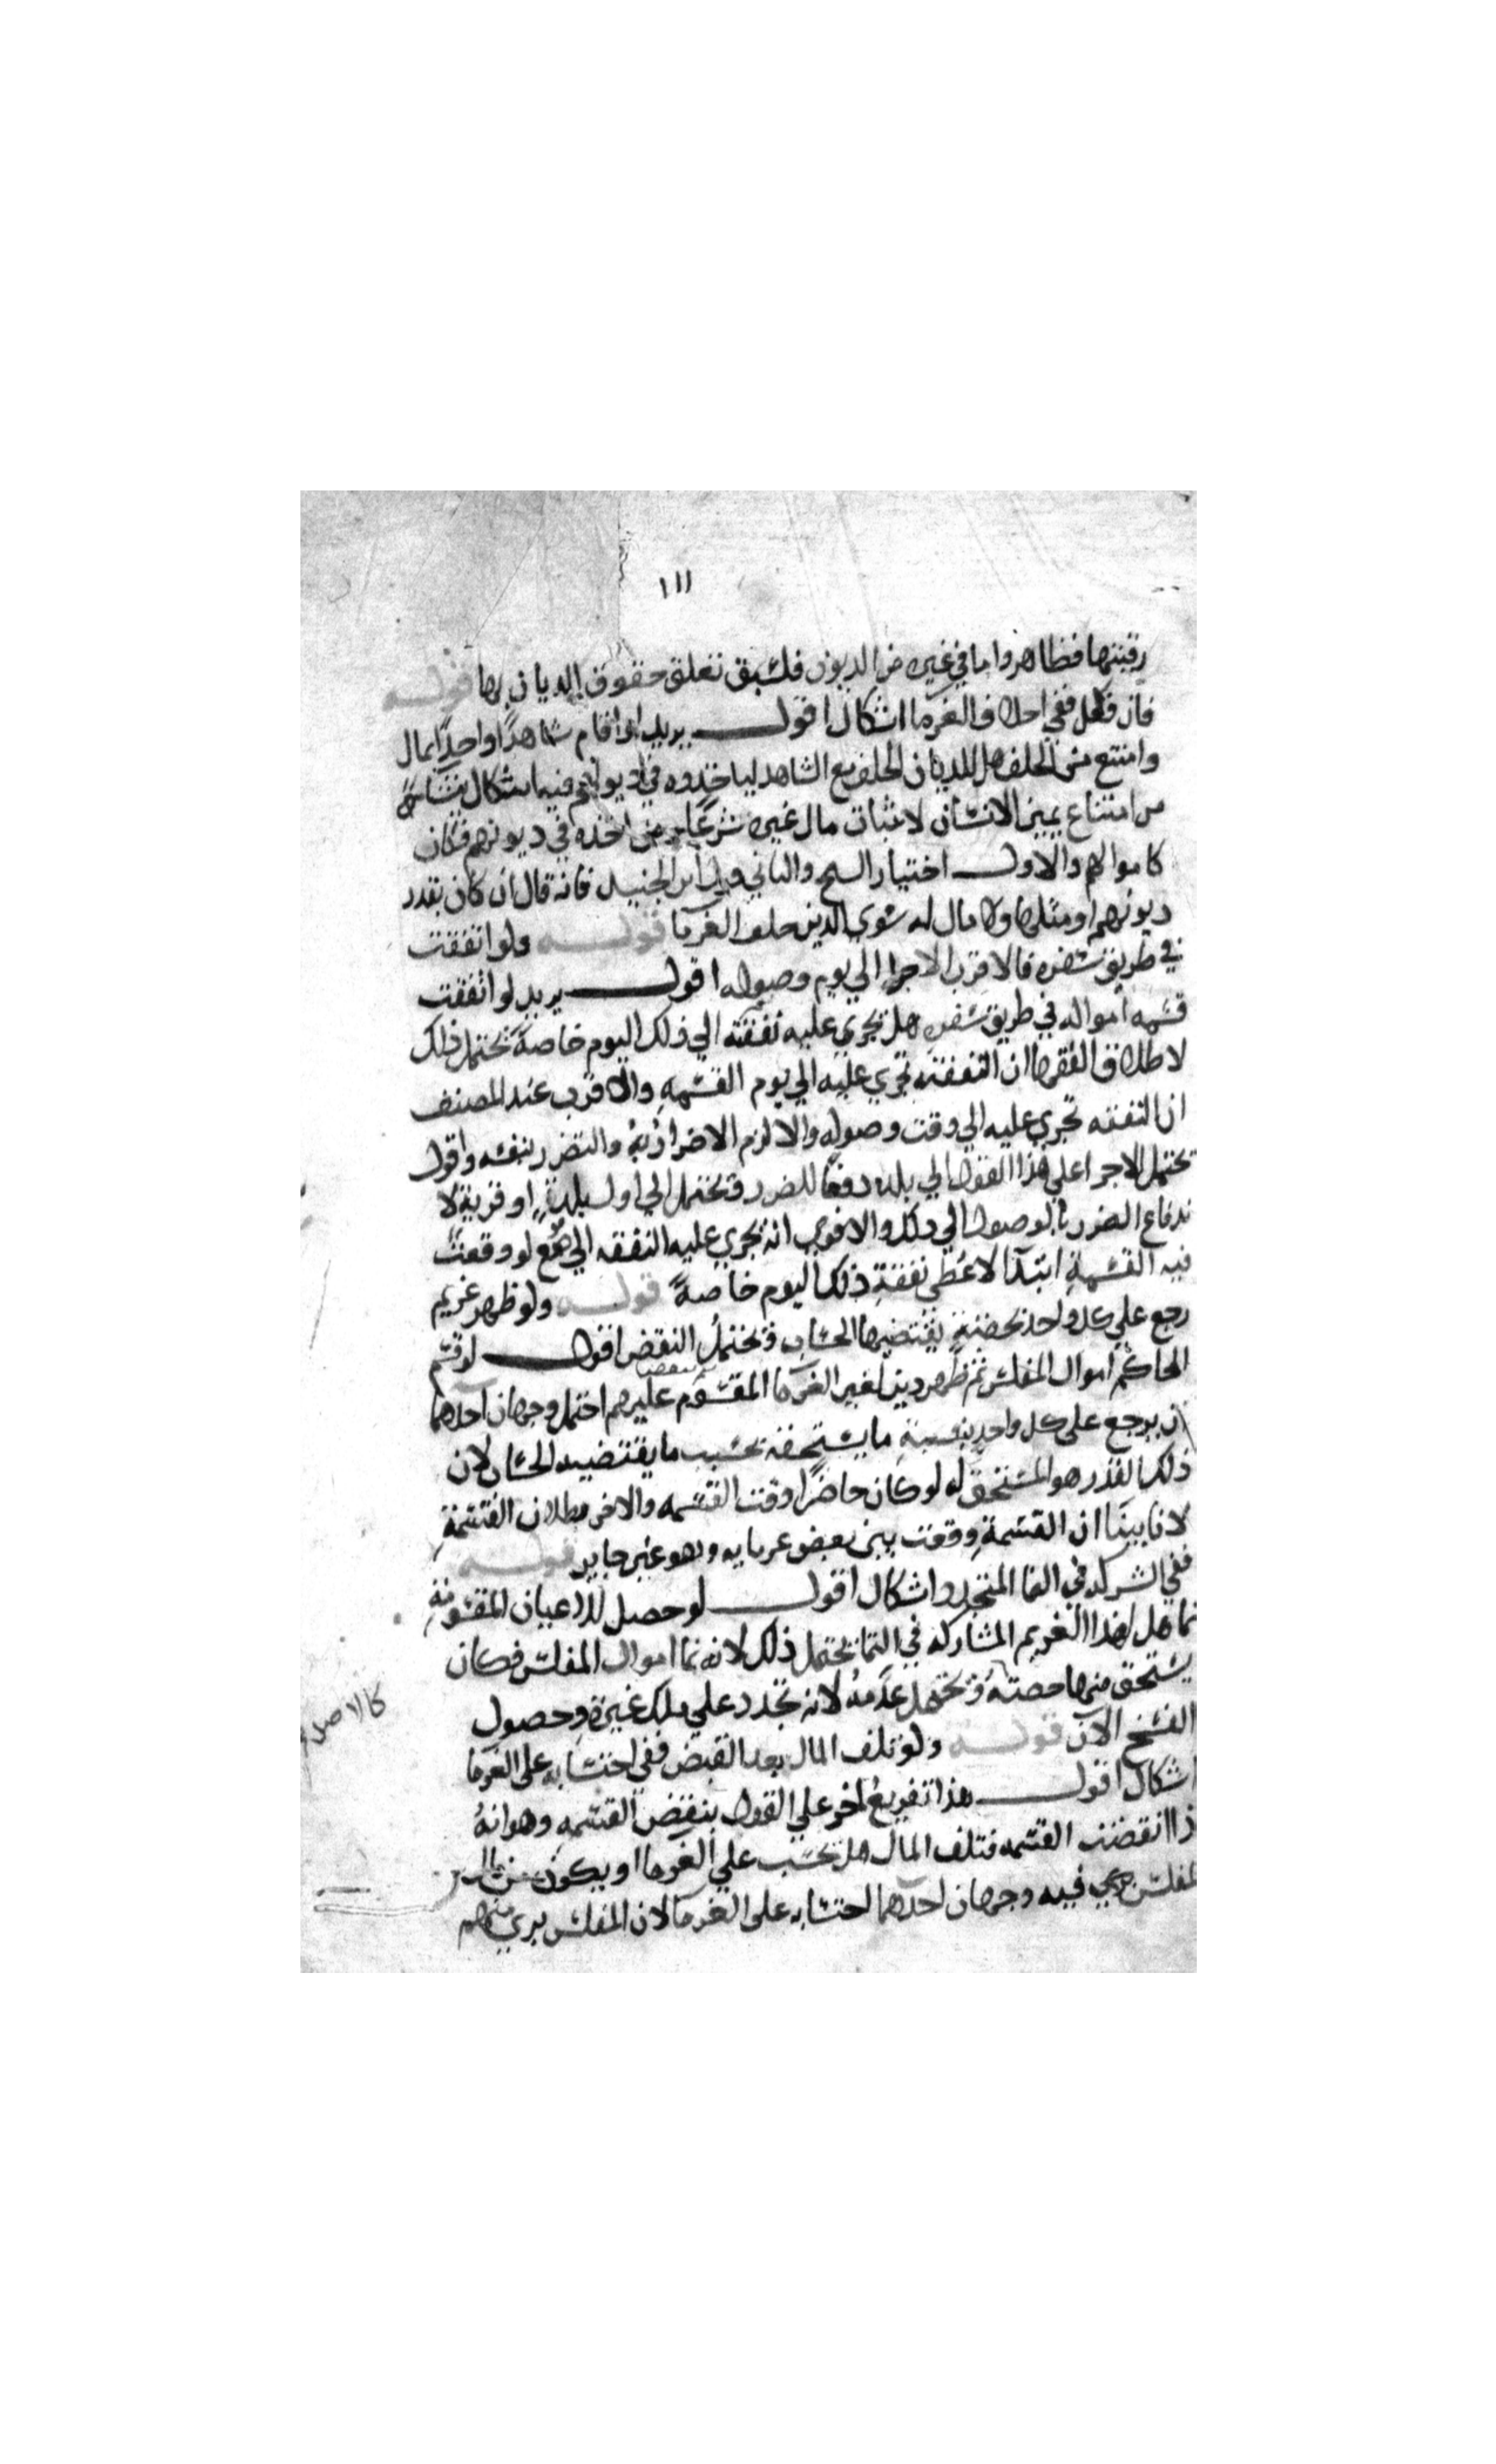 ١١١
رقبتها فظاهر واما في غيره من الديون فلسبق تعلق حقوق الديان بها قوله
فان نكل ففي احلاف الغرما اشكال اقول يريد اذا اقام شاهدا واحدا بمال
وامتنع من الحلف هل للديان الحلف مع الشاهد لياخذوه في ديونهم فيه اشكال ينشا
من امتناع يمين الانسان لاثبات مال غيره شرعا ومن اخذه في ديونهم فكان
كاموالهم والاول اختيار الشيخ والثاني قول ابن الجنيد فانه قال ان كان بقدر
ديونهم او مثلها ولا مال له سوى الدين حلف الغرما قوله ولو اتفقت
في طريق سفره فالاقرب الاجرا الي يوم وصوله اقول يريد لو اتفقت
قسمه امواله في طريق سفره هل تجري عليه نفقته الي ذلك اليوم خاصة يحتمل ذلك
لاطلاق الفقها ان النفقه تجري عليه الي يوم القسمه والاقرب عند المصنف
ان النفقه تجري عليه الي وقت وصوله والا لزم الاضرار به والتضرر بنفسه واقول
يحتمل الاجرا علي هذا القول الي بلده دفعا للضرر ويحتمل الي اول بلدة او قرية لا
ندفاع الضرر بالوصول الي ذلك والاقوي انه تجري عليه النفقه الي موضع لو وقعت
فيه القسمة ابتدا لاعطي نفقة ذلك اليوم خاصة قوله ولو ظهر غريم
رجع علي كل واحد بحصة يقتضيها الحساب ويحتمل النقض اقول لو قسم
الحاكم اموال المفلس ثم ظهر دين لغير الغرما المقسوم عليهم احتمل وجهان احدهما
ان يرجع على كل واحد بنسبة ما يستحقه بحسب ما يقتضيه الحساب لان
ذلك القدر هو المستحق له لو كان حاضرا وقت القسمه والاخر بطلان القسمة
لانا بينا ان القسمة وقعت بين بعض غرمايه وهو غير جايز قوله
ففي الشركه في النما المتجدد اشكال اقول لو حصل للاعيان المقسومة
نما هل لهذا الغريم المشاركه في النما يحتمل ذلك لانه نما اموال المفلس فكان
يستحق منها حصته ويحتمل عدمه لانه تجدد علي ملك غيره وحصول
الفسخ الآن قوله ولو تلف المال بعد القبض ففي احتسابه على الغرما
اشكال اقول هذا تفريع اخر علي القول بنقض القسمه وهو انه
ذا انقضت القسمه فتلف المال هل يحسب علي الغرما او يكون من مال
لمفلس فيه وجهان احدهما احتسابه على الغرما لان المفلس بري